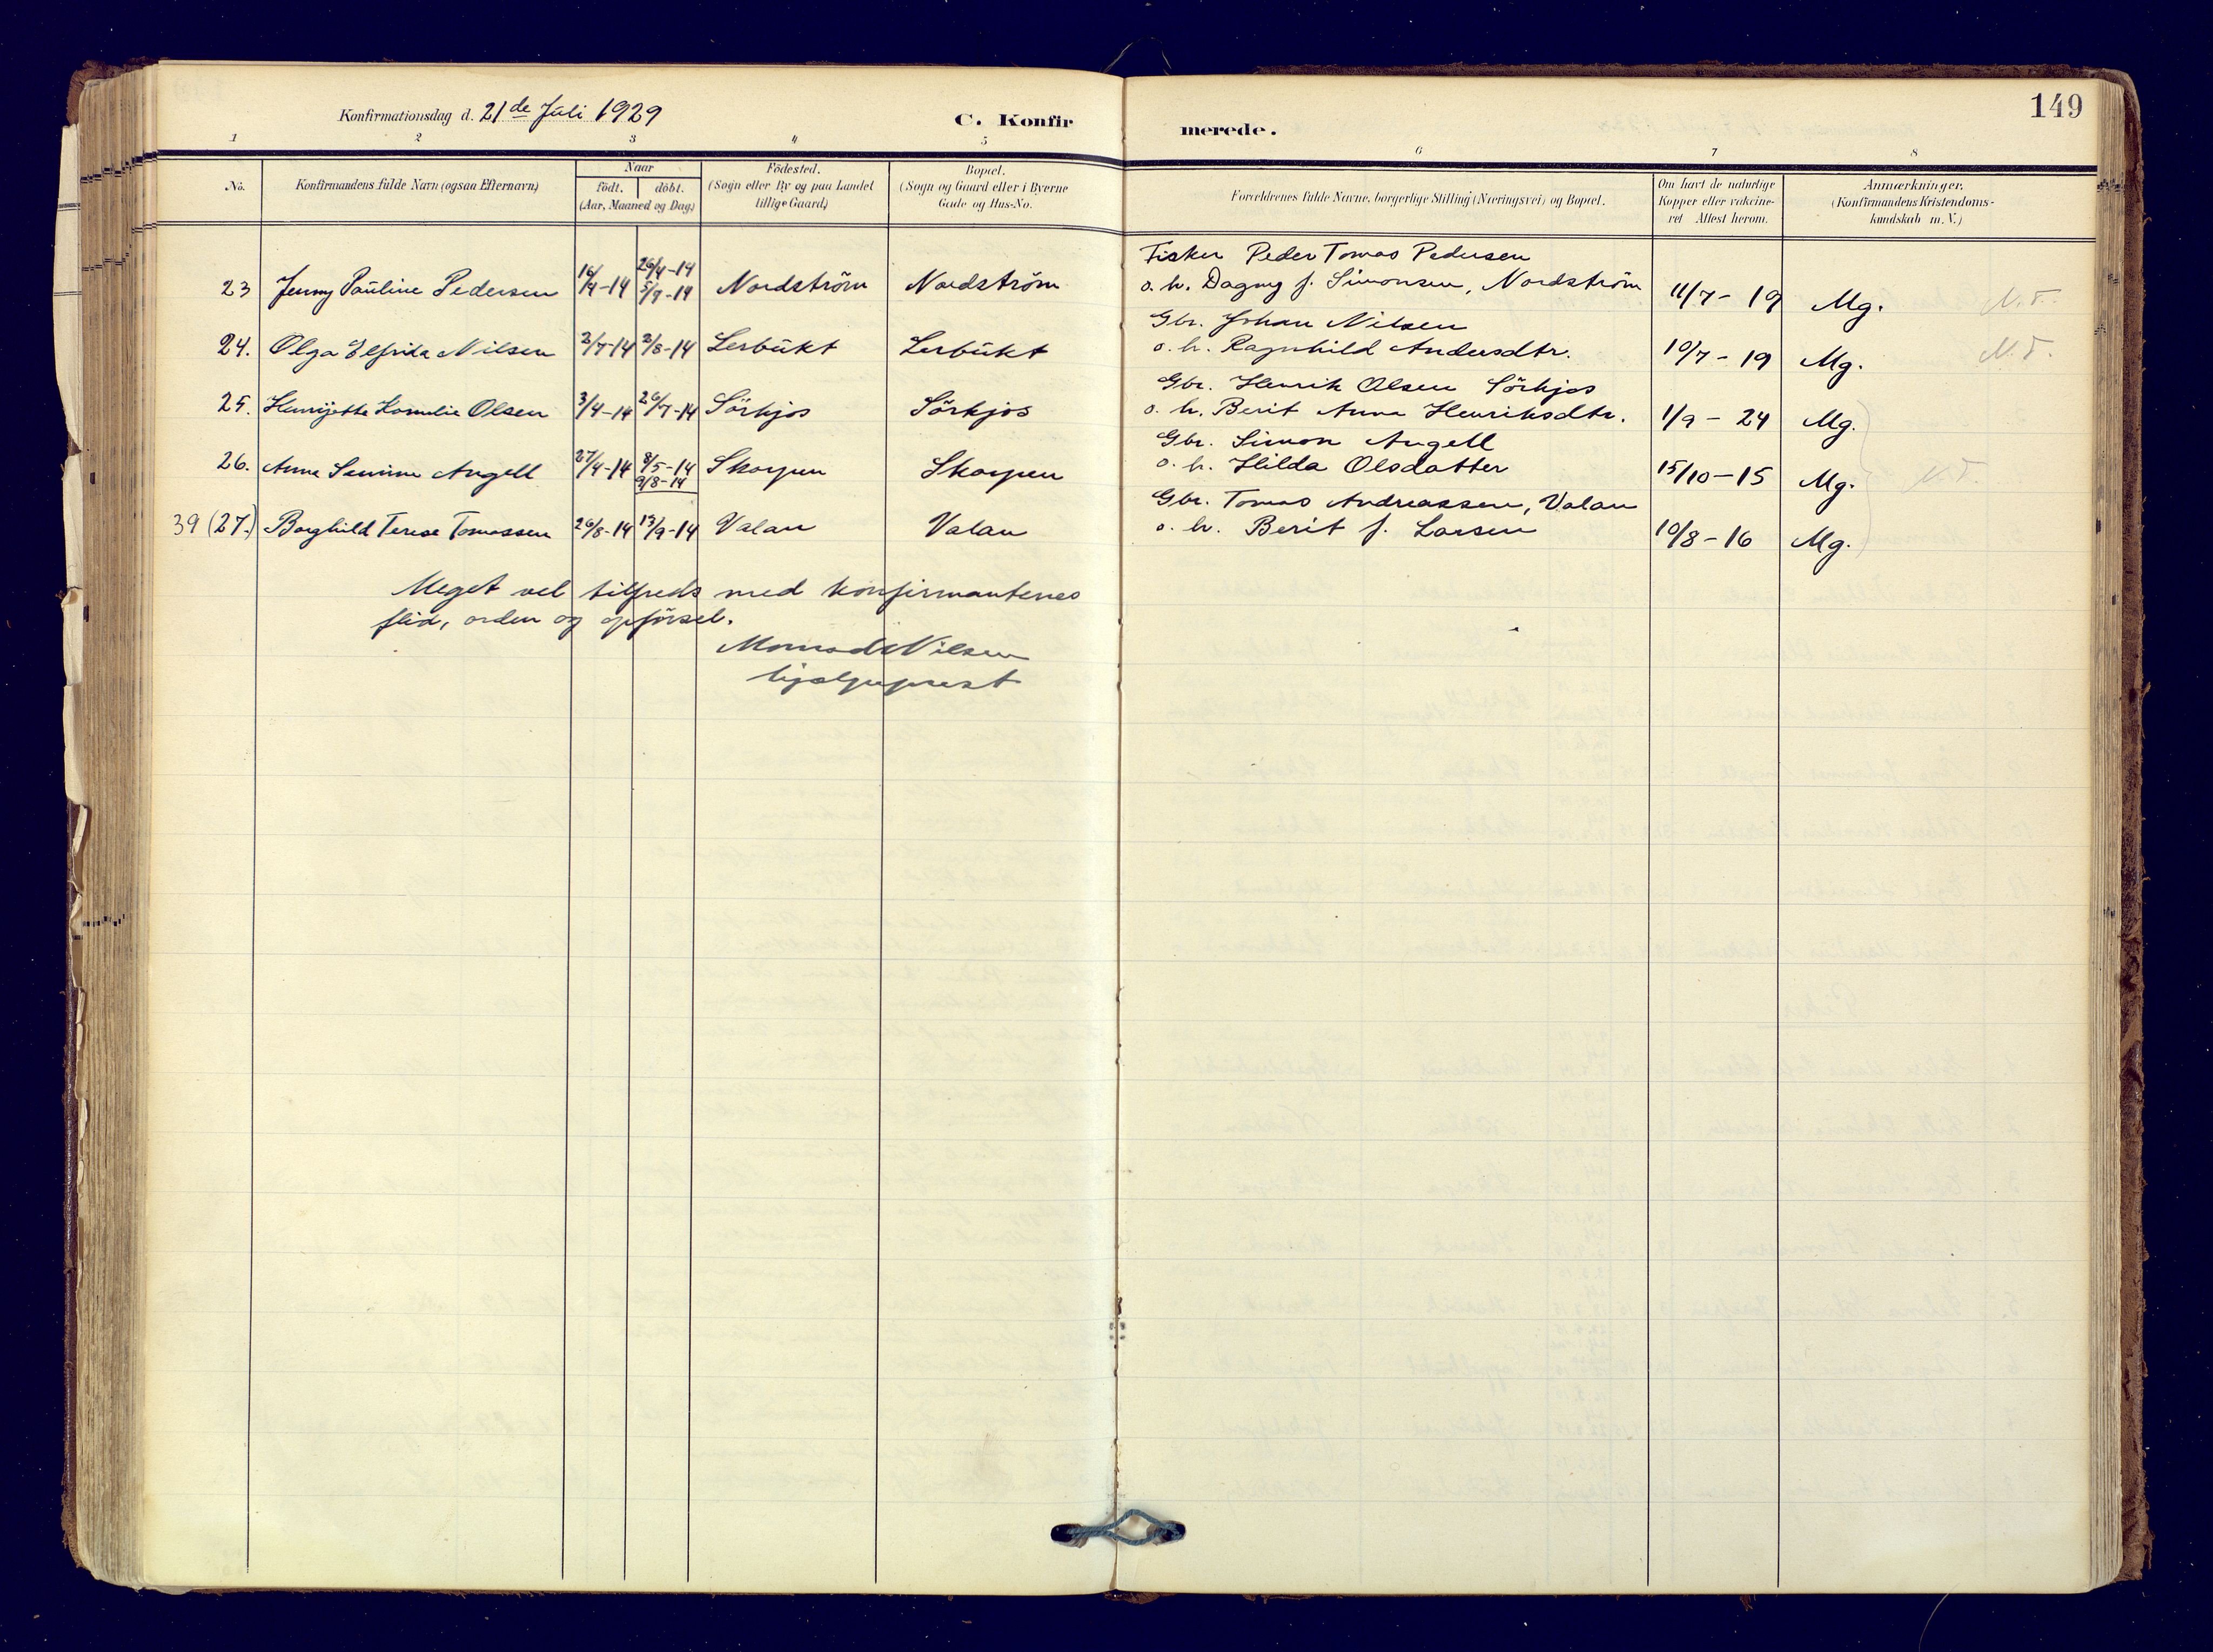 149
Konfirmationsdag d. 21de Juli 1929
C. Konfirmerede.
1 2 3 4 5 6 7 8
No. Konfirmandens fulde Navn (ogsaa Efternavn) Naar Födested. Bopæl. Forældrenes fulde Navne, borgerlige Stilling (Næringsvei) og Bopæl. Om havt de naturlige Anmærkninger.
födt. döbt. (Sogn eller By og paa Landet (Sogn og Gaard eller i Byerne Kopper eller vakcine- (Konfirmandens Kristendoms-
(Aar, Maaned og Dag.) tillige Gaard) Gade og Hus-No. ret Attest herom. kundskab m. V.)
Fisker Peder Tomas Pedersen
26/4-14
23 Jenny Pauline Pedersen 16/4-14 5/7-14 Nordström Nordström o. h. Dagny f. Simonsen, Nordström 11/7-19 Mg. N.T.
Gbr. Johan Nilsen
24. Olga Elfrida Nilsen 2/7-14 2/8-14 Lerbukt Lerbukt o. h. Ragnhild Andersdtr. 10/7-19 Mg. N.T.
Gbr. Henrik Olsen Sörkjos
25. Henrijette Kornelie Olsen 3/4-14 26/7-14 Sörkjos Sörkjos o. h. Berit Anna Henriksdtr. 1/9-24 Mg.
Gbr. Simon Angell
26. Anna Angell 27/4-14 8/5-14 Skorpen Skorpen o. h. Hilda Olsdatter 15/10-15 Mg. N.T.
9/8-14
Gbr. Tomas Andreassen, Valan
39 (27.) Borghild Terese Tomassen 26/8-14 13/9-14 Valan Valan o. h. Berit f. Larsen 10/8-16 Mg.
Meget vel tilfreds med konfirmantenes
flid, orden og opförsel.
Monrad Nilsen
hjælpeprest